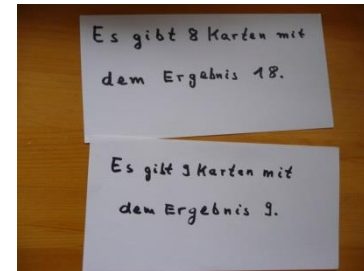 Es gibt 8 Karten mit
dem Ergebnis 18.
Es gibt 9 Karten mit
dem Ergebnis 9.